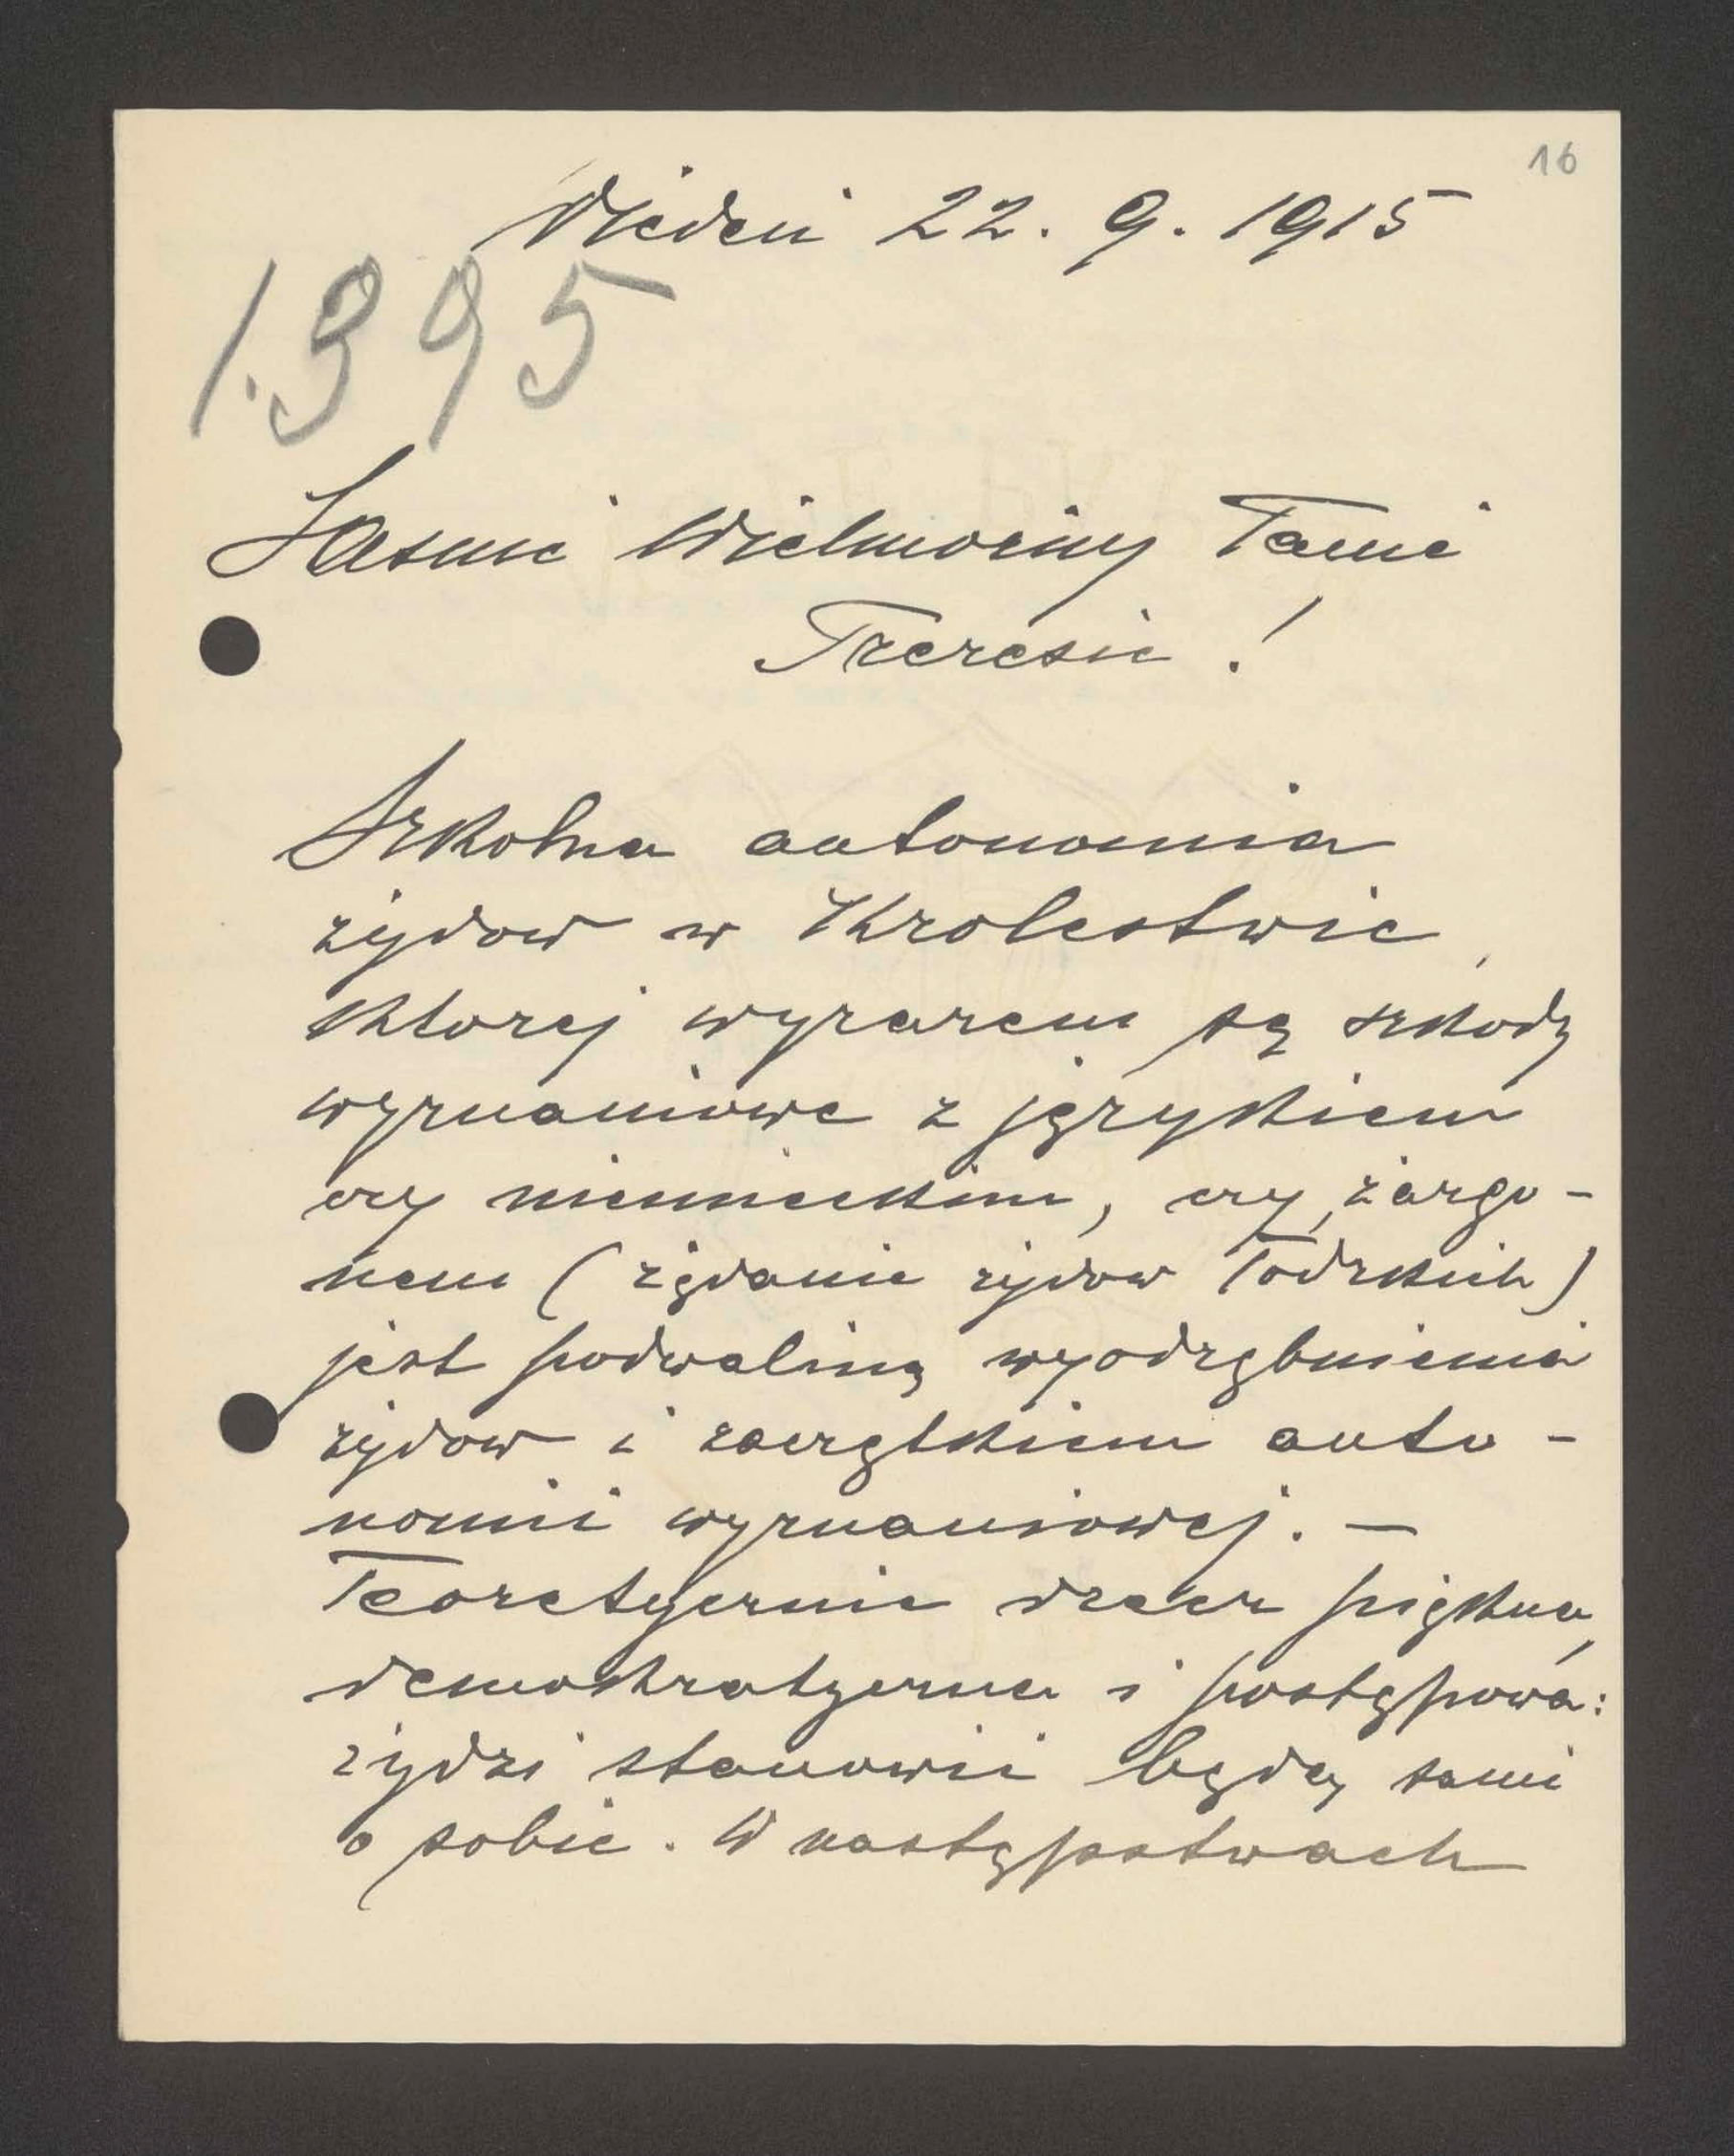 16
Wiedeń 22. 9. 1915
1.395
Jaśnie Wielmożny Panie
Prezesie !
Szkolna autonomia
żydow w Krolestwie,
ktorej wyrazem są szkoły
wyznaniowe z językiem
czy niemieckim, czy żargo-
nem (żądanie żydow łodzkich)
jest podwaliną wyodrębnienia
żydow i zaczątkiem auto-
nomii wyznaniowej. –
Teoretycznie rzecz piękna,
demokratyczna i postępowa:
żydzi stanowić będą sami
o sobie. W następstwach